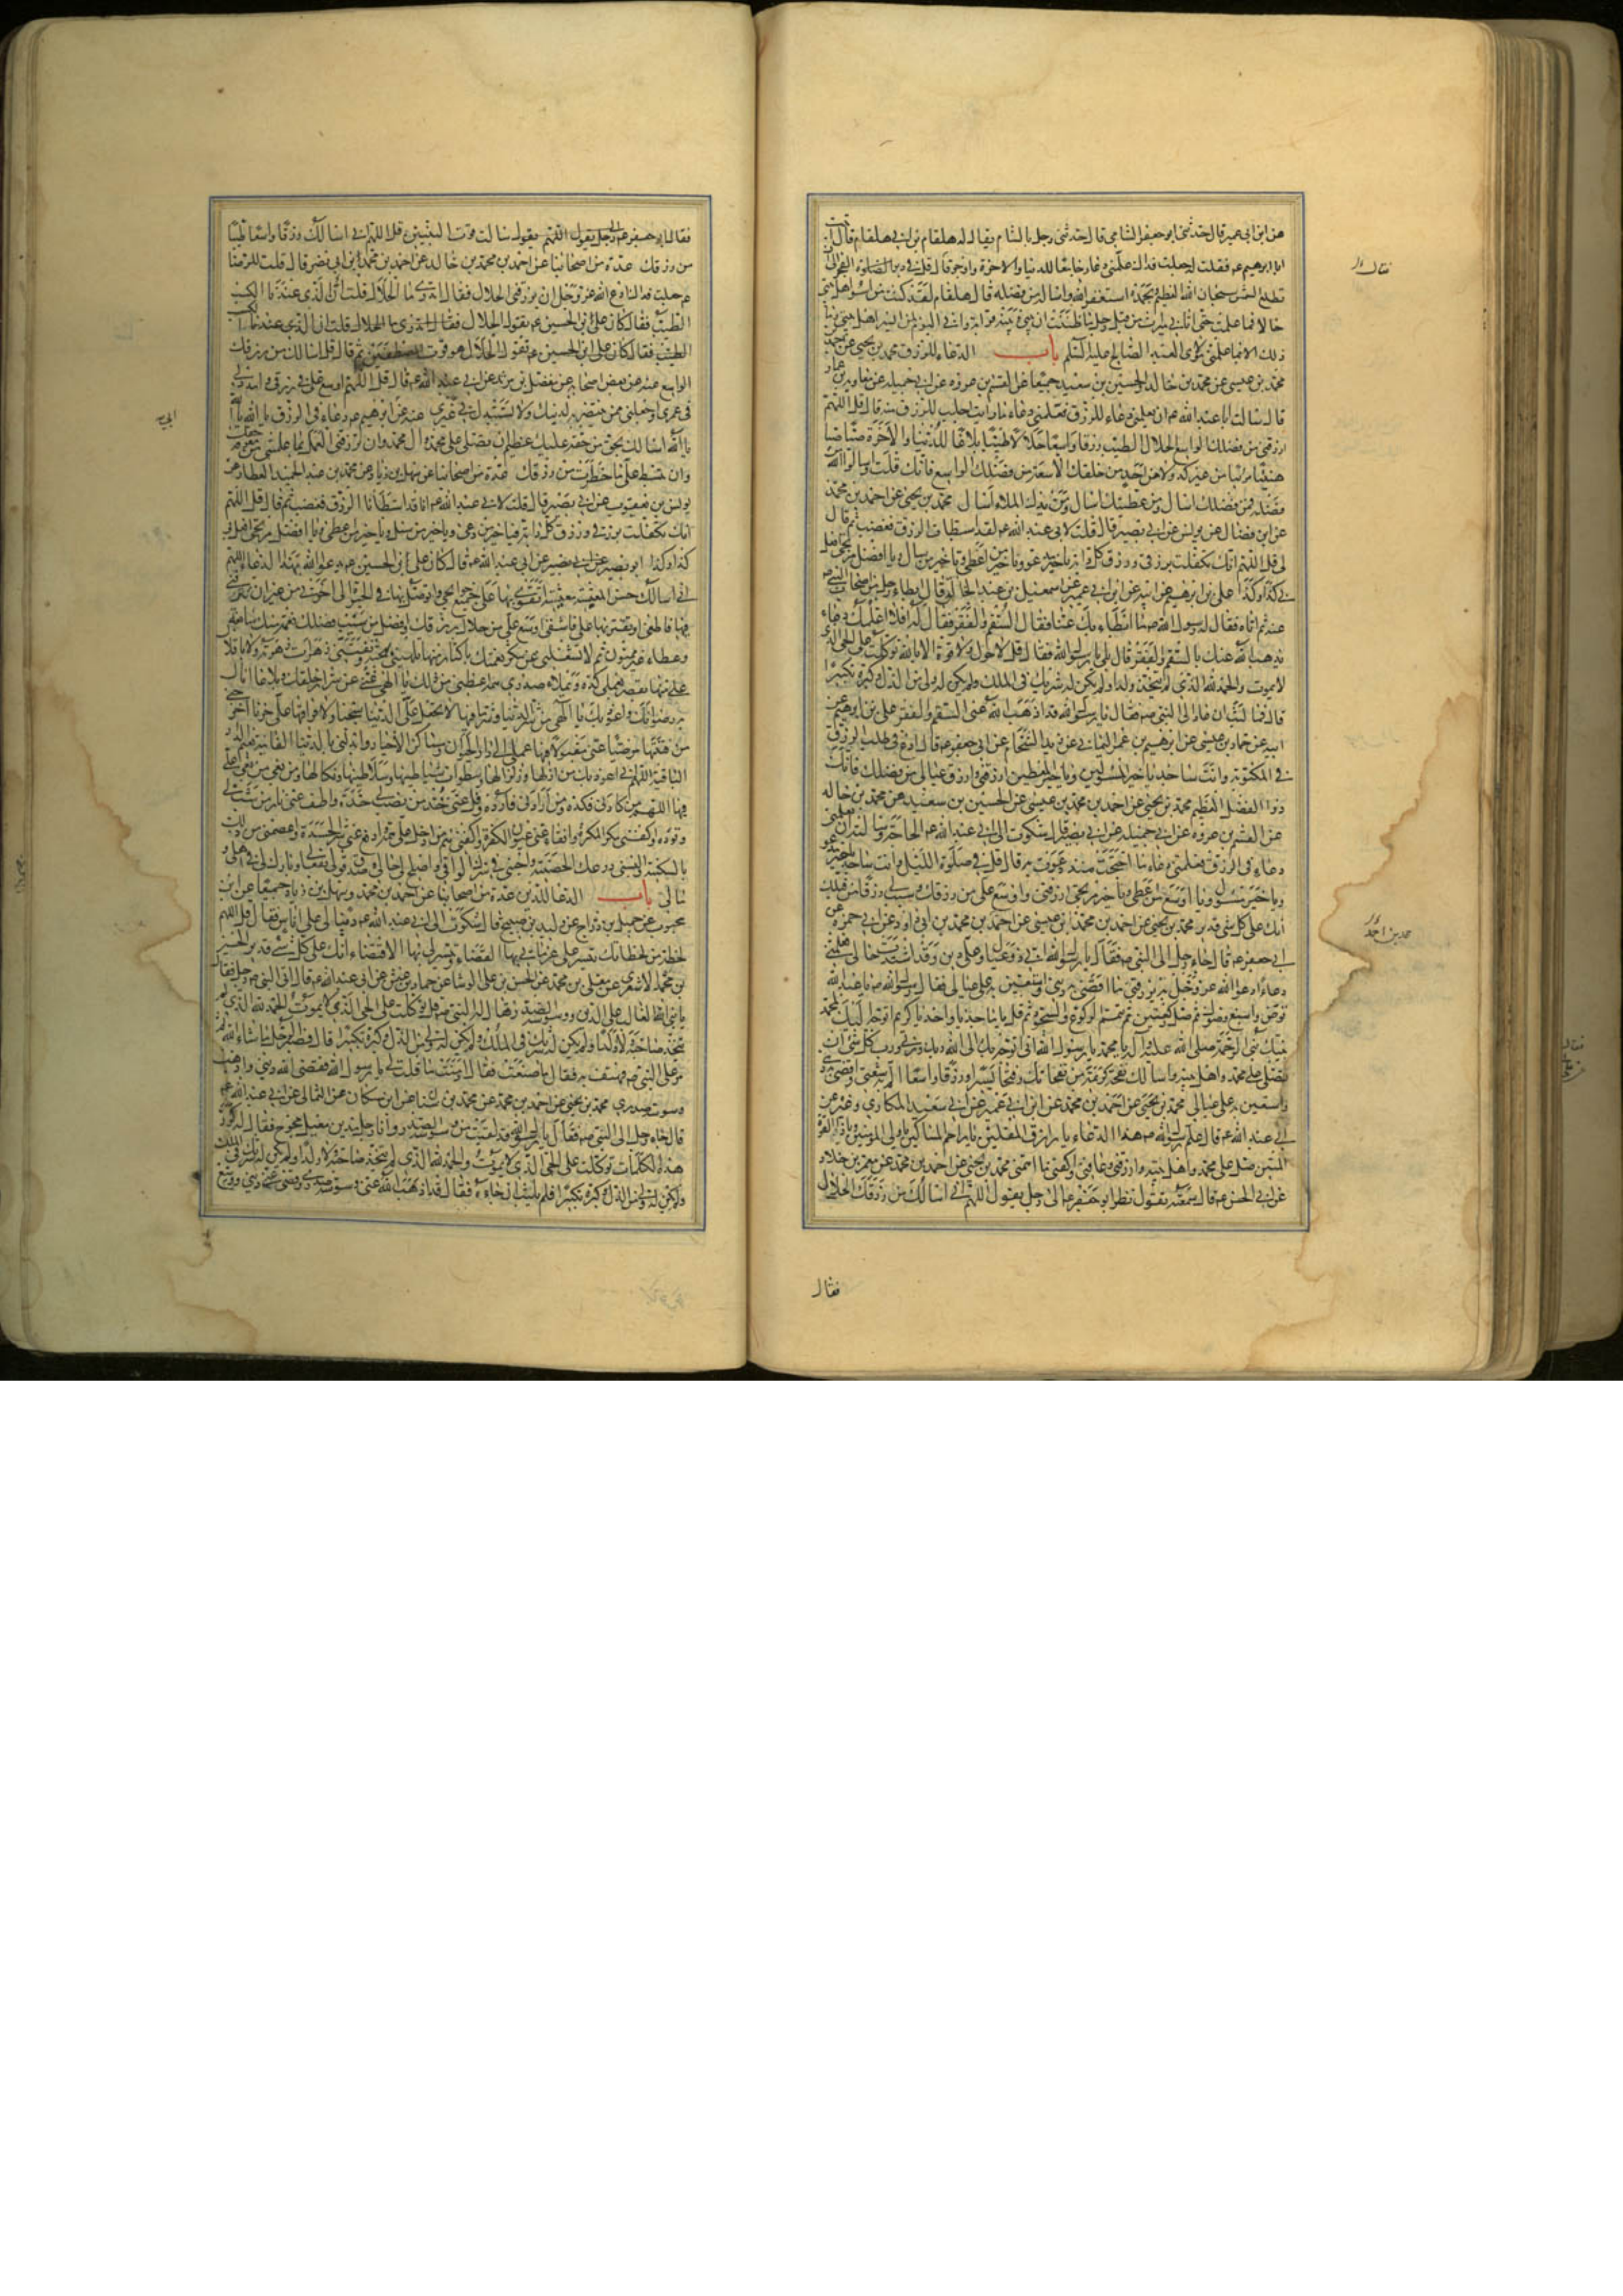 عن ابن ابى عمير قال حدثنى ابو جعفر الشامى قال حدثنى رجل بالشام يقال له هلقام بن ابى هلقام قال اتيت
ابا ابرهيم عم فقلت له جعلت فداك علمنى دعاء جامعا للدنيا والاخرة واوجز قال قل فى دبر الصلوة الفجر الى ان
تطلع الشمس سبحان الله العظيم وبحمده استغفر الله واسأله من فضله قال هلقام لقد كنت من اسوء اهل بيتى
حالا فما علمت حتى اتانى ميراث من قبل رجل ما ظننت ان بينى وبينه قرابة وانى اليوم لمن ايسر اهل بيتى وما
ذلك الا بما علمنى مولاى العبد الصالح عليه السلم باب الدعاء للرزق محمد بن يحيى عن احمد بن
محمد بن عيسى عن محمد بن خالد والحسين بن سعيد جميعا عن القسم بن عروة عن ابى جميله عن معاوية بن عمار
قال سالت ابا عبد الله عم ان يعلمنى دعاء للرزق فعلمنى دعاء ما رايت اجلب للرزق منه قال قل اللهم
ارزقنى من فضلك الواسع الحلال الطيب رزقا واسعا حلالا طيبا بلاغا للدنيا والاخرة صبا صبا
هنيئا مريئا من غير كد ولا من احد من خلقك الا سعة من فضلك الواسع فانك قلت واسالوا الله من
فضله فمن فضلك اسال ومن عطيتك اسال ومن يدك الملاء اسال محمد بن يحيى عن احمد بن محمد
عن ابن فضال عن يونس عن ابى بصير قال قلت لابى عبد الله عم لقد استبطات الرزق فغضب ثم قال
لى قل اللهم انك تكفلت برزقى ورزق كل دابة يا خير مدعو ويا خير من اعطى ويا خير من سال ويا افضل مرتجى افعل
بى كذا وكذا على بن ابرهيم عن ابيه عن ابن ابى عمير عن اسمعيل بن عبد الخالق قال ابطاء رجل من اصحاب النبى ص
عنه ثم اتاه فقال له رسول الله ص ما ابطاء بك عنا فقال السقم والفقر فقال له افلا اعلمك دعاء
يذهب الله عنك بالسقم والفقر قال بلى يا رسول الله فقال قل لا حول ولا قوة الا بالله توكلت على الحى الذى
لا يموت والحمد لله الذى لم يتخذ ولدا ولم يكن له شريك فى الملك ولم يكن له ولى من الذل وكبره تكبيرا
قال فما لبث ان عاد الى النبى ص فقال يا رسول الله قد اذهب الله عنى السقم والفقر على بن ابرهيم عن
ابيه عن حماد بن عيسى عن ابرهيم بن عمر اليمانى عن زيد الشحام عن ابى جعفر عم قال ادع فى طلب الرزق
فى المكتوبة وانت ساجد يا خير المسؤلين ويا خير المعطين ارزقنى وارزق عيالى من فضلك فانك
ذوا الفضل العظيم محمد بن يحيى عن احمد بن محمد بن عيسى عن الحسين بن سعيد عن محمد بن خالد
عن القسم بن عروة عن ابى جميله عن ابى بصير قال شكوت الى ابى عبد الله عم الحاجة وسالته ان يعلمنى
دعاء فى الرزق فعلمنى دعاء ما احتجت منذ دعوت به قال قل فى صلوة الليل وانت ساجد يا خير مدعو
ويا خير مسؤل ويا اوسع من اعطى ويا خير مرتجى ارزقنى واوسع على من رزقك وسبب لى رزقا من قبلك
انك على كل شئ قدير محمد بن يحيى عن احمد بن محمد بن عيسى عن احمد بن محمد بن ابى داود عن ابى حمزه عن
ابى جعفر عم قال جاء رجل الى النبى ص فقال يا رسول الله انى ذو عيال وعلى دين وقد اشتدت حالى فعلمنى
دعاء ادعو الله عز وجل به يرزقنى ما اقضى به دينى واستعين به على عيالى فقال رسول الله ص يا عبد الله
توض واسبغ وضوئك ثم صل ركعتين تتم الركوع والسجود ثم قل يا ماجد يا واحد يا كريم اتوجه اليك بمحمد
نبيك نبى الرحمة صلى الله عليه وآله يا محمد يا رسول الله انى اتوجه بك الى الله ربك وربى ورب كل شئ ان
تصلى على محمد واهل بيته واسالك نفحة كريمة من نفحاتك وفتحا يسيرا ورزقا واسعا الم به شعثى واقضى به دينى
واستعين به على عيالى محمد بن يحيى عن احمد بن محمد عن ابن ابى عمير عن ابى سعيد المكارى وغيره عن
ابى عبد الله عم قال علم رسول الله ص هذا الدعاء يا رازق المقلين يا راحم المساكين يا ولى المؤمنين يا ذا القوة
المتين صل على محمد واهل بيته وارزقنى وعافنى واكفنى ما اهمنى محمد بن يحيى عن احمد بن محمد عن معمر بن خلاد
عن ابى الحسن عم قال سمعته يقول نظر ابو جعفر عم الى رجل يقول اللهم انى اسالك من رزقك الحلال
فقال
فقال ابو جعفر عم الى رجل يقول اللهم يقول سالت قوت النبيين قل اللهم انى اسالك رزقا واسعا طيبا
من رزقك عدة من اصحابنا عن احمد بن محمد بن خالد عن احمد بن محمد بن ابى نصر قال قلت للرضا
عم جعلت فداك ادع الله عز وجل ان يرزقنى الحلال فقال اتدرى ما الحلال قلت ان الذى عندنا الكسب
الطيب فقال كان على بن الحسين عم يقول الحلال فقال اتدرى ما الحلال قلت ان الذى عندنا الكسب
الطيب فقال كان على ابن الحسين عم يقول الحلال هو قوت المصطفين ثم قال قل اسالك من رزقك
الواسع عنه عن بعض اصحابه عن مفضل بن مزيد عن ابى عبد الله عم قال قل اللهم اوسع على فى رزقى وامدد لى
فى عمرى واجعلنى ممن ينتصر به لدينك ولا تستبدل بى غيرى عنه عن ابرهيم عم دعاء فى الرزق يا الله يا الله
يا الله اسالك بحق من حقه عليك عظيم ان تصلى على محمد وال محمد وان ترزقنى العمل بما علمتنى من معرفة حقك
وان تبسط على ما حظرت من رزقك عدة من اصحابنا عن سهل بن زياد عن محمد بن عبد الحميد العطار عن
يونس بن يعقوب عن ابى بصير قال قلت لابى عبد الله عم انا قد استبطأنا الرزق فغضب ثم قال قل اللهم
انك تكفلت برزقى ورزق كل دابة فيا خير من دعى ويا خير من سئل ويا خير من اعطى ويا افضل مرتجى افعل بى
كذا وكذا ابو بصير عن ابى بصير عن ابى عبد الله عم قال كان على ابن الحسين عم يدعو الله بهذا الدعاء اللهم
انى اسالك حسن المعيشة معيشة اتقوى بها على جميع حوائجى واتوصل بها فى الحيوة الى اخرتى من غير ان تترفنى
فيها فاطغى او تقتر بها على فاشقى اوسع على من حلال رزقك وافضل من سيب فضلك نعمة منك سابغة
وعطاء غير ممنون ثم لا تشغلنى عن شكر نعمتك باكثار منها تلهينى بهجته وتفتننى زهرات زهوته ولا باقلال
على منها يقصر بعملى كده ويملاء صدرى همه اعطنى من ذلك يا الهى غنى عن شرار خلقك وبلاغا انال
به رضوانك واعوذ بك يا الهى من شر الدنيا وشر ما فيها لا تجعل على الدنيا سجنا ولا فراقها على حزنا اخرجنى
من فتنتها مرضيا عنى مقبولا فيها عملى الى دار الحيوان ومساكن الاخيار وابدلنى بالدنيا الفانية نعيم الدار
الباقية اللهم انى اعوذ بك من ازلها وزلزالها وسطوات شياطينها وسلاطينها ونكالها ومن بغى من بغى على
فيها اللهم من كادنى فكده ومن ارادنى فارده وفل عنى حد من نصب لى حده واطف عنى نار من شب لى
وقوده واكفنى مكر المكرة وافقأ عنى عيون الكفرة واكفنى هم من ادخل على همه وادفع عنى شر الحسدة واعصمنى من ذلك
بالسكينة والبسنى درعك الحصينة واحينى فى سترك الواقى واصلح لى حالى وصدق قولى بفعالى وبارك لى فى اهلى و
مالى باب الدعا للدين عدة من اصحابنا عن احمد بن محمد وسهل بن زياد جميعا عن ابن
محبوب عن جميل بن دراج عن وليد بن صبيح قال شكوت الى ابى عبد الله عم دينا لى على اناس فقال قل اللهم
لحظة من لحظاتك تيسر على غرمائى بها القضاء وتيسر لى بها الاقتضاء انك على كل شئ قدير الحسين
بن محمد الاشعرى عن معلى بن محمد عن الحسن بن على الوشا عن حماد بن عثمن عن ابى عبد الله عم قال اتى النبى ص رجل فقال
يا نبى الله الغالب على الدين ووسوسة الصدر فقال له النبى ص قل توكلت على الحى الذى لا يموت الحمد لله الذى لم
يتخذ صاحبة ولا ولدا ولم يكن له شريك فى الملك ولم يكن له ولى من الذل وكبره تكبيرا قال فصبر الرجل ما شاء الله ثم
مر على النبى ص فهتف به فقال ما صنعت فقال ادمنت ما قلت لى يا رسول الله فقضى الله دينى واذهب
وسوسة صدرى محمد بن يحيى عن احمد بن محمد عن محمد بن سنان عن ابن مسكان عن الثمالى عن ابى عبد الله عم
قال جاء رجل الى النبى ص فقال يا رسول الله قد لقيت من وسوسة الصدر وانا رجل مدين معيل محوج فقال له كرر
هذه الكلمات توكلت على الحى الذى لا يموت والحمد لله الذى لم يتخذ صاحبة ولا ولدا ولم يكن له شريك فى الملك
ولم يكن له ولى من الذل وكبره تكبيرا فلم يلبث ان جاءه فقال قد اذهب الله عنى وسوسة صدرى وقضى عنى دينى ووسع